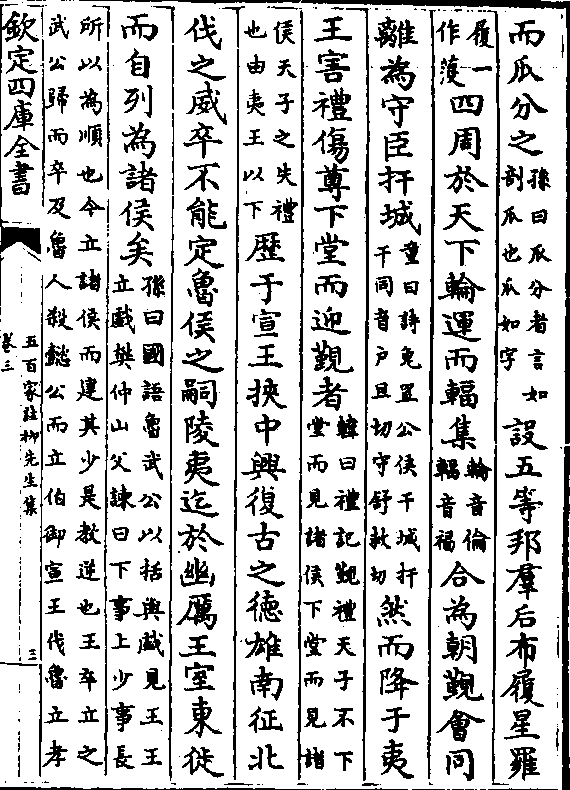 而瓜分之孫曰瓜分者言如剖瓜也瓜如字設五等邦羣后布履星羅
履一作濩四周於天下輪運而輻集輪音倫輻音福合為朝覲會同
離為守臣扞城童曰詩兔罝公侯干城扞干同音户旦切守舒救切然而降于夷
王害禮傷尊下堂而迎覲者韓曰禮記覲禮天子不下堂而見諸侯下堂而見諸
侯天子之失禮也由夷王以下歷于宣王挾中興復古之德雄南征北
伐之威卒不能定魯侯之嗣陵夷迄於幽厲王室東徙
而自列為諸侯矣孫曰國語魯武公以括與戲見王王立戲樊仲山父諫曰下事上少事長
所以為順也今立諸侯而建其少是教逆也王卒立之武公歸而卒及魯人殺懿公而立伯御宣王伐魯立孝
欽定四庫全書
五百家註柳先生集
卷三
三